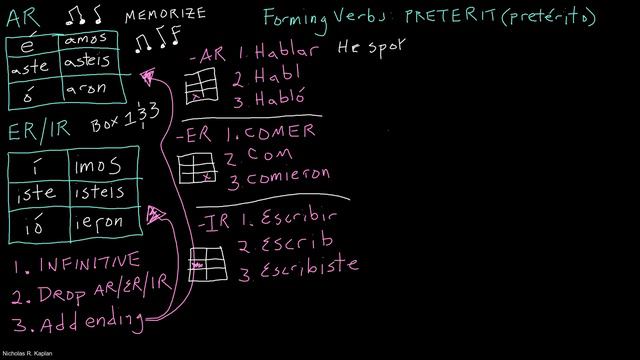 AR MEMORIZE
é amos
aste asteis
ó aron
ER/IR Box 133
í imos
iste isteis
ió ieron
1. INFINITIVE
2. DROP AR/ER/IR
3. Add ending
Forming Verbs: PRETERIT (pretérito)
-AR 1. Hablar He spok
2. Habl
3. Habló
-ER 1. COMER
2. COM
3. Comieron
-IR 1. Escribir
2. Escrib
3. Escribiste
Nicholas R. Kaplan